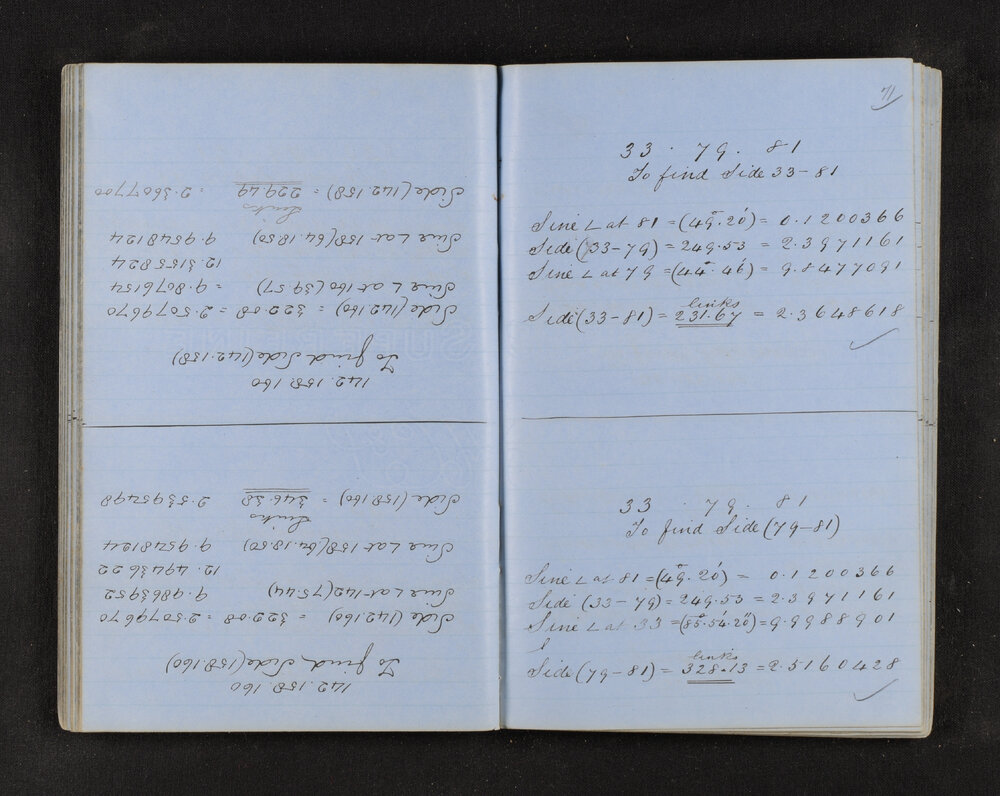 142. 158. 160
To find Side (158.160)
Side (142.160) = 322.08 = 2.5079670
Sine ∠ at 142 (75.44) 9.9863952
12.4943622
Sine ∠ at 158 (64.18.50) 9.9548124
Links
Side (158.160) = 346.38 2.5395498
142. 158. 160
To find Side (142.158)
Side (142.160) = 322.08 = 2.5079670
Sine ∠ at 160 (39.57) = 9.8076154
12.3155824
Sine ∠ at 158 (64.18.50) 9.9548124
Links
Side (142.158) = 229.49 = 2.3607700
71
33 . 79 . 81
To find Side 33-81
Sine ∠ at 81 = (49°.20') = 0.1200366
Side (33-79) = 249.53 = 2.3971161
Sine ∠ at 79 = (44°.46') = 9.8477091
links
Side (33-81) = 231.67 = 2.3648618
33 79. 81
To find Side (79-81)
Sine ∠ at 81 = (49°.20') = 0.1200366
Side (33-79) = 249.53 = 2.3971161
Sine ∠ at 33 = (85°.54'.20") = 9.9988901
links
Side (79-81) = 328.13 = 2.5160428